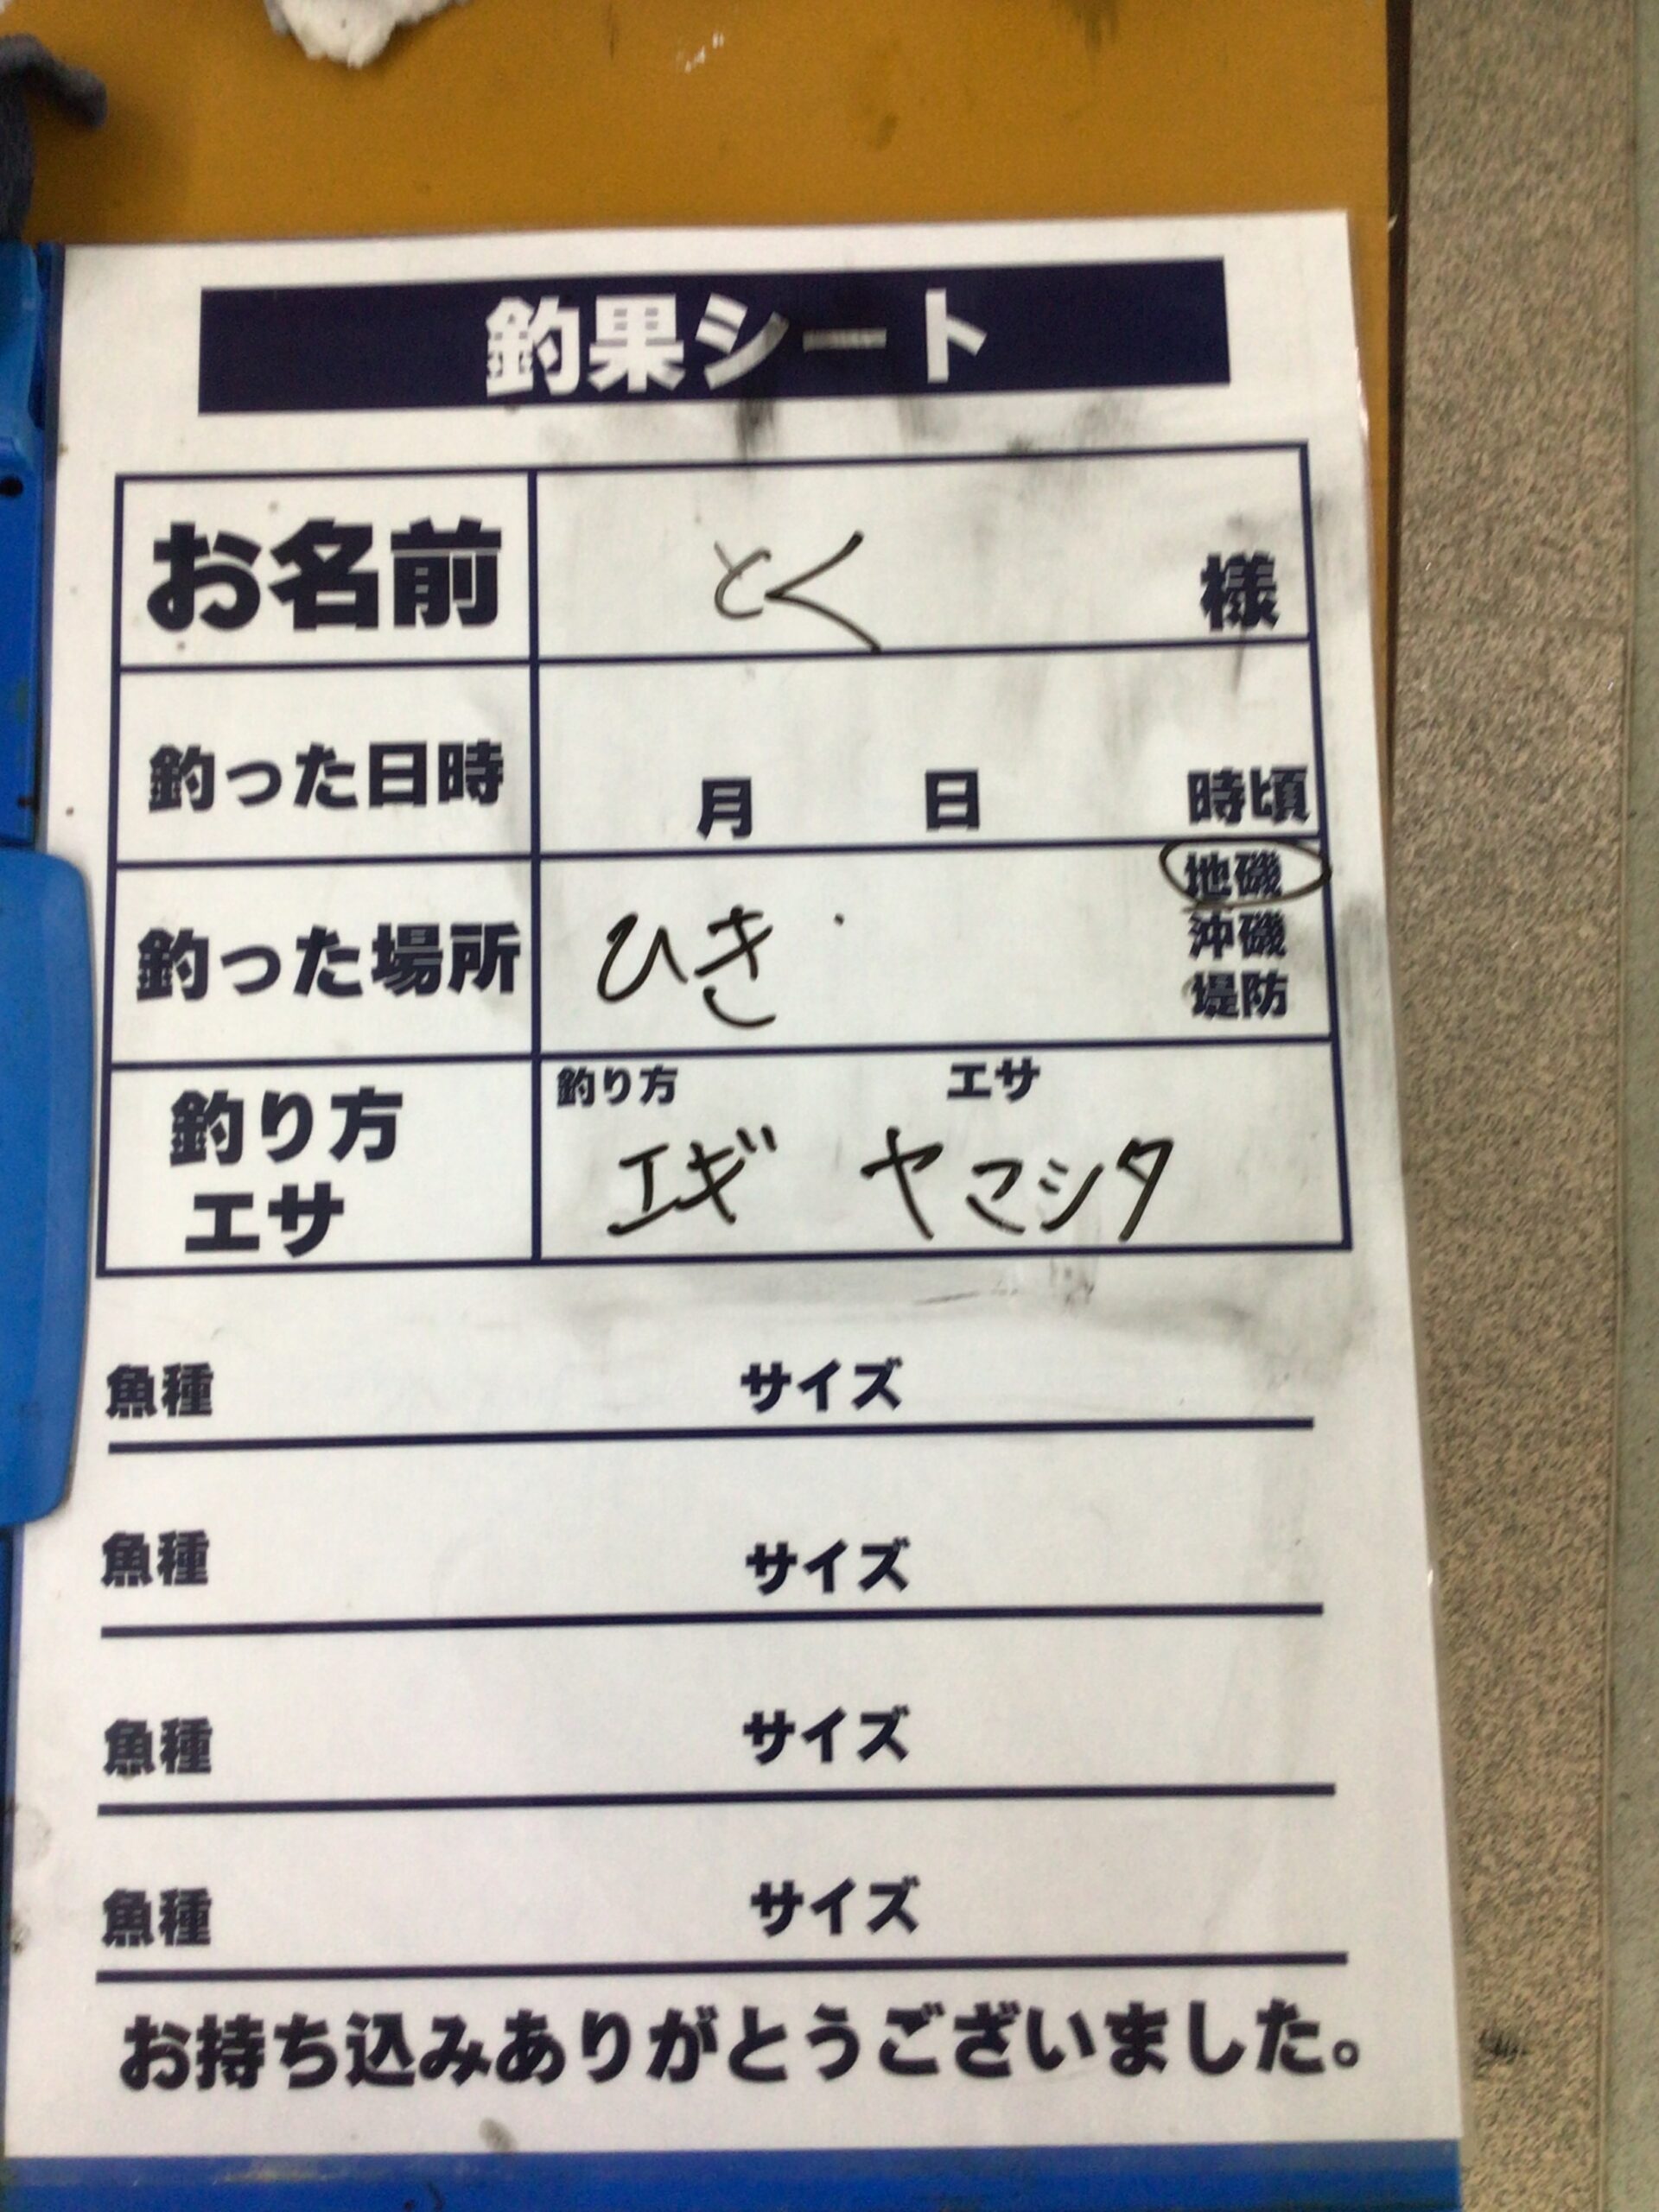 釣果シート
お名前 とく 様
釣った日時 月 日 時頃
釣った場所 ひき 地磯
沖磯
堤防
釣り方 エサ
釣り方 エギ ヤマシタ
エサ
魚種 サイズ
魚種 サイズ
魚種 サイズ
魚種 サイズ
お持ち込みありがとうございました。